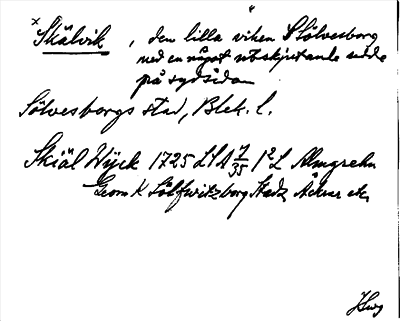 x Skälvik, den lilla viken S Sölvesborg
med en något utskjutande udde
på sydsidan
Sölvesborgs stad, Blek. l.
Skiäl Wijck 1725 LSA 7/35 1:2 L Almgrehn
Geom K Sölfwitzborg Stadz Åkrar etc